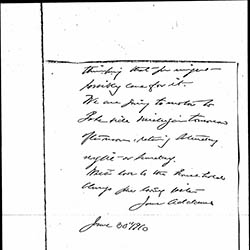 thinking that you might
possibly care for it.
We are going to motor to
Lake side Michigan tomorrow
afternoon, returning Saturday
night – or Sunday.
With love to the household
always your loving sister
Jane Addams
June 30 1910